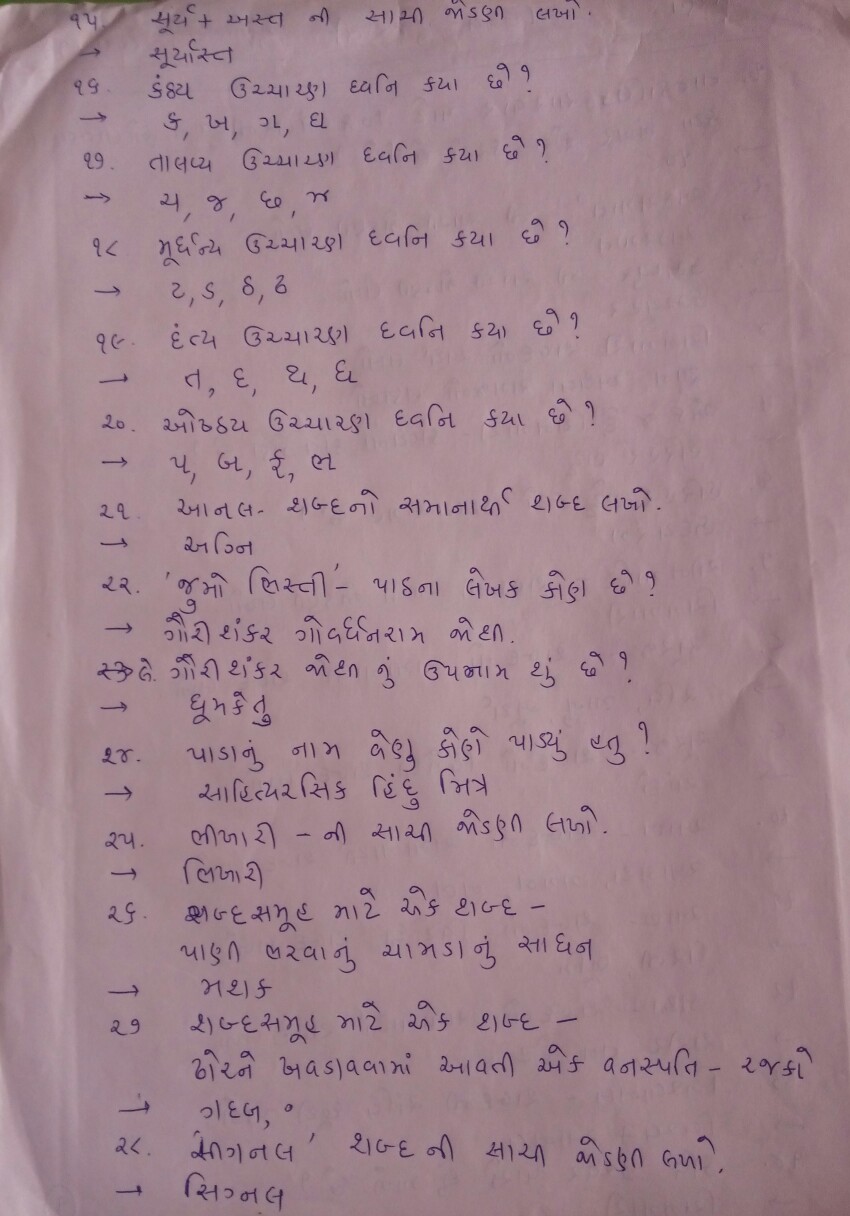 ૧૫. સૂર્ય + અસ્ત ની સાચી જોડણી લખો.
→ સૂર્યાસ્ત
૧૬. કંઠ્ય ઉચ્ચારણ ધ્વનિ કયા છે?
→ ક, ખ, ગ, ઘ
૧૭. તાલવ્ય ઉચ્ચારણ ધ્વનિ કયા છે?
→ ચ, જ, છ, ઝ
૧૮ મૂર્ધન્ય ઉચ્ચારણ ધ્વનિ કયા છે?
→ ટ, ડ, ઠ, ઢ
૧૯. દંત્ય ઉચ્ચારણ ધ્વનિ કયા છે?
→ ત, દ, થ, ધ
૨૦. ઓષ્ઠય ઉચ્ચારણ ધ્વનિ કયા છે?
→ પ, બ, ફ, ભ
૨૧. આનલ- શબ્દનો સમાનાર્થી શબ્દ લખો.
→ અગ્નિ
૨૨. 'જુમો ભિસ્તી' - પાઠના લેખક કોણ છે?
→ ગૌરીશંકર ગોવર્ધનરામ જોશી.
ગૌરીશંકર જોશી નું ઉપનામ શું છે?
→ ધૂમકેતુ
૨૪. પાડાનું નામ વેણુ કોણે પાડ્યું હતુ?
→ સાહિત્યરસિક હિંદુ મિત્રે
૨૫. ભીખારી - ની સાચી જોડણી લખો.
→ ભિખારી
૨૬. શબ્દસમૂહ માટે એક શબ્દ -
પાણી ભરવાનું ચામડાનું સાધન
→ મશક
૨૭ શબ્દસમૂહ માટે એક શબ્દ -
ઢોરને ખવડાવવામાં આવતી એક વનસ્પતિ - રજકો
→ ગદબ,
૨૮. 'સીગનલ' શબ્દ ની સાચી જોડણી લખો.
→ સિગ્નલ